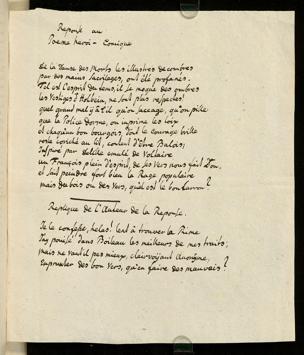 Reponse au
Poème heroi-Comique
de la Danse des Morts les illustres décombres
par des mains sacrileges, ont été profanés.
Tel est l'esprit du tems, il se moque des ombres
les vestiges d'Holbein, ne sont plus respectés!
quel grand mal y a t'il qu'on saccage, qu'on pille
que la Police dorme, on imprime les loix
et chaqu'un bon bourgois, dont le courage brille
reste couché au lit, content d'être Balois;
un François plein d'esprit, de ses vers nous fait Don,
et sait peindre fort bien la Rage populaire
mais du bois ou des Vers, quel est le bon larron?
Replique de l'Auteur de la Reponse.
Je le confesse, helas! las à trouver la Rime
J'ay pouisé dans Boileau les meilleurs de mes traits;
mais ne vaut il pas mieux, clairvoyant Anonyme,
emprunter des bon vers, qu'en faire des mauvais?